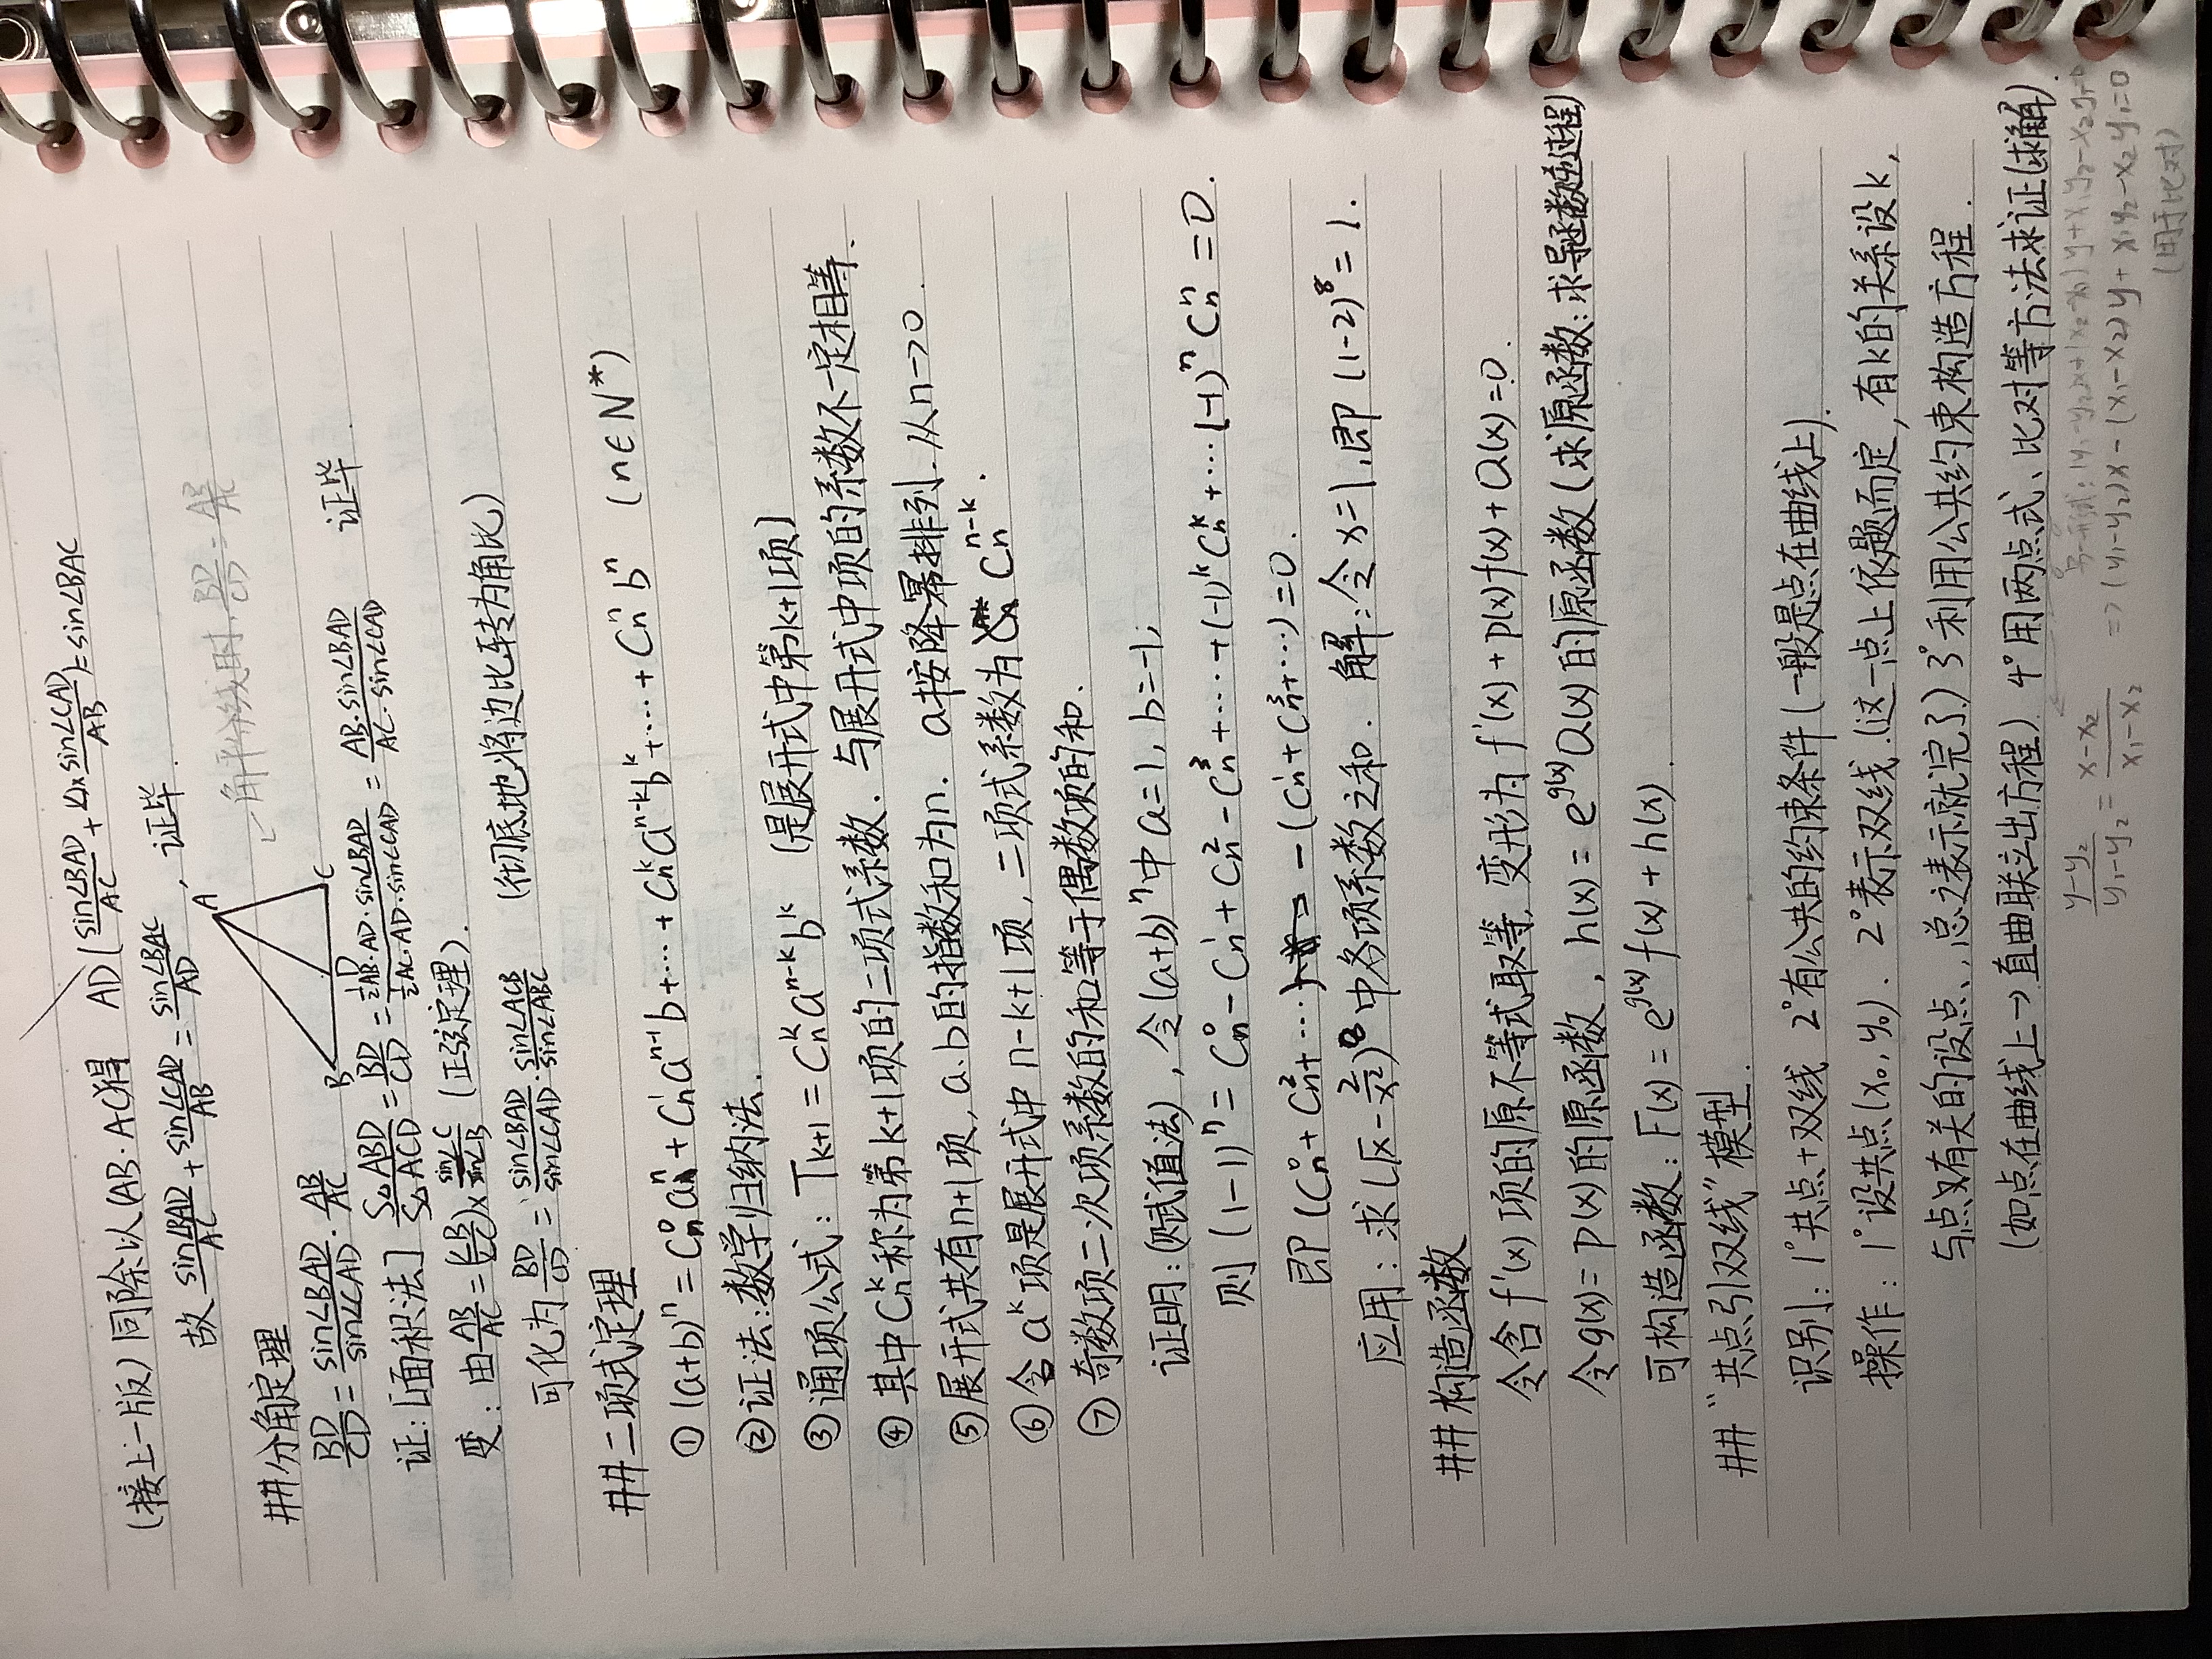 (接上一版) 同除以(AB·AC)得 AD(sin∠BAD/AC + 2x sin∠CAD/AB) = sin∠BAC
故 sin∠BAD/AC + sin∠CAD/AB = sin∠BAC/AD, 证毕.
##分角定理
角平分线时, BD/CD = AB/AC
A
B
D
C
BD/CD = sin∠BAD/sin∠CAD · AB/AC
证: [面积法] S△ABD/S△ACD = BD/CD = ½AB·AD·sin∠BAD/½AC·AD·sin∠CAD = AB·sin∠BAD/AC·sin∠CAD 证毕.
变: 由 AB/AC = sinC/sinB (正弦定理).
可化为 BD/CD = sin∠BAD/sin∠CAD · sin∠ACB/sin∠ABC (彻底地将边比转为角比)
##二项式定理
① (a+b)ⁿ = Cₙ⁰aⁿ + Cₙ¹aⁿ⁻¹b + ···· + Cₙᵏaⁿ⁻ᵏbᵏ + ··· + Cₙⁿbⁿ (n∈N*)
②证法: 数学归纳法.
③通项公式: Tₖ₊₁ = Cₙᵏaⁿ⁻ᵏbᵏ (是展开式中第k+1项)
④ 其中Cₙᵏ称为第k+1项的二项式系数. 与展开式中项的系数不一定相等.
⑤展开式共有n+1项, a.b的指数和为n. a按降幂排列. 从n→0.
⑥ 含aᵏ项是展开式中n-k+1项, 二项式系数为Cₙⁿ⁻ᵏ.
⑦ 奇数项二次项系数的和等于偶数项的和.
证明: (赋值法), 令(a+b)ⁿ中a=1, b=-1,
则 (1-1)ⁿ = Cₙ⁰ - Cₙ¹ + Cₙ² - Cₙ³ + ···· + (-1)ᵏCₙᵏ + ···· (-1)ⁿCₙⁿ = 0.
即 (Cₙ⁰ + Cₙ² + ···) - (Cₙ¹ + Cₙ³ + ···) = 0.
应用: 求(√x - 2/x²)⁸中各项系数之和. 解: 令x=1, 即 (1-2)⁸ = 1.
##构造函数
令含f'(x)项的原不等式取等, 变形为 f'(x) + p(x)f(x) + Q(x) = 0.
令g(x) = p(x)的原函数, h(x) = e^g(x) Q(x)的原函数 (求原函数: 求导函数逆过程)
可构造函数: F(x) = e^g(x) f(x) + h(x).
##"共点引双线"模型.
识别: 1°共点+双线 2°有公共的约束条件 (一般是点在曲线上).
操作: 1°设共点(x₀, y₀). 2°表示双线. (这一点上依题而定, 有k的关系设k,
与点又有关的设点, 总之表示就完了) 3°利用公共约束构造方程
(如点在曲线上→直曲联立出方程) 4°用两点式、比对等方法求证(求解).
另一形式: (y₁-y₂)x+(x₂-x₁)y+x₁y₂-x₂y₁=0
y-y₂/y₁-y₂ = x-x₂/x₁-x₂ ⇒ (y₁-y₂)x - (x₁-x₂)y + x₁y₂ - x₂y₁ = 0
(用于比对)